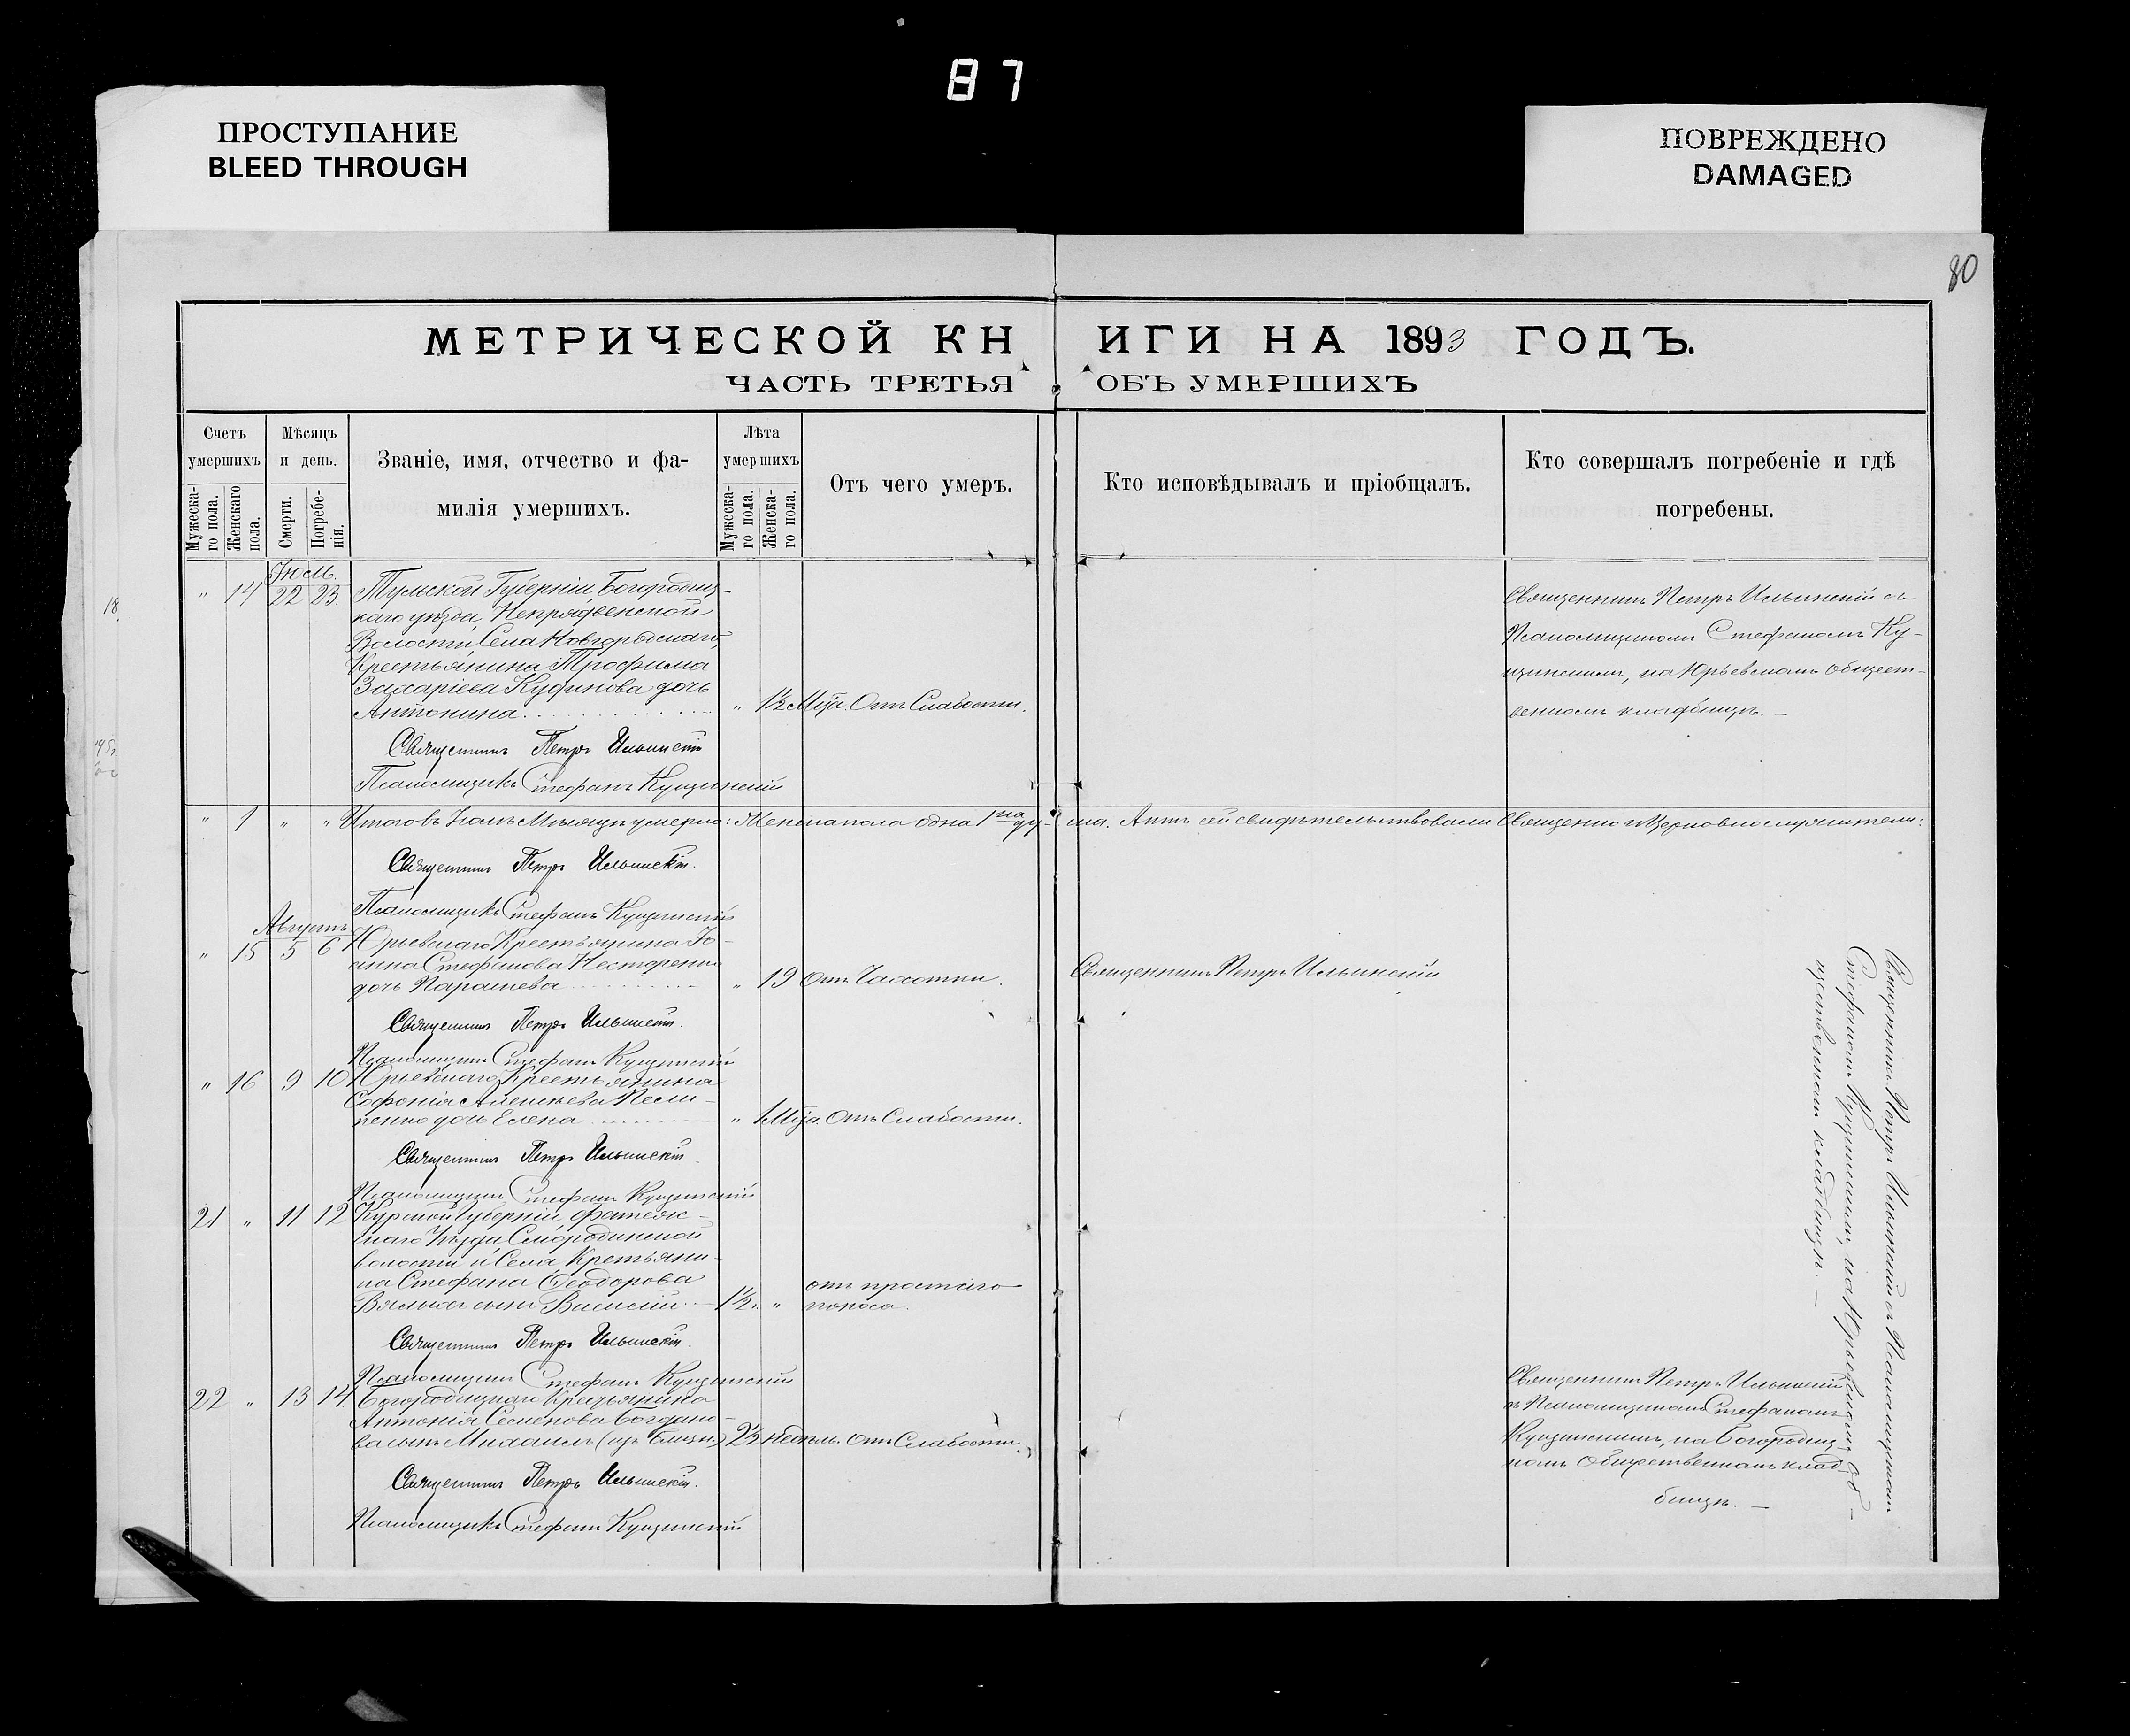 87
ПРОСТУПАНИЕ
BLEED THROUGH
ПОВРЕЖДЕНО
DAMAGED
80
МЕТРИЧЕСКОЙ КНИГИ НА 1893 ГОДЪ.
ЧАСТЬ ТРЕТЬЯ ОБЪ УМЕРШИХЪ
Счетъ умершихъ
Мужеска-го пола.
Женскаго пола.
Мѣсяцъ и день.
Смерти.
Погребе-нія.
Званіе, имя, отчество и фа-
милія умершихъ.
Лѣта умершихъ
Мужеска-го пола.
Женска-го пола.
Отъ чего умеръ.
Кто исповѣдывалъ и пріобщалъ.
Кто совершалъ погребеніе и гдѣ
погребены.
Іюль.
„ 14 22 23. Тульской Губерніи Богородиц-
каго уѣзда, Непрядвенской
Волости, Села
Крестьянина Трофима
Захаріева Кудинова дочь
Антонина. „ 1½ Мѣс. Отъ Слабости.
Священникъ Петръ Ильинскій съ
Псаломщикомъ Стефаномъ Ку-
щинскимъ, на Юрьевскомъ общест-
венномъ кладбищѣ. —
Священникъ Петръ Ильинскій
Псаломщикъ Стефанъ Кущинскій
„ 1 „ „ Итого въ Іюлѣ Мѣсяцѣ умерло: Женска пола одна 1на ду-ша. Актъ сей свидѣтельствовали Священно и Церковнослужители:
Священникъ Петръ Ильинскій.
Псаломщикъ Стефанъ Кущинскій
Августъ
„ 15 5 6 Юрьевскаго Крестьянина Іо-
анна Стефанова Нестеренко
дочь Параскева „ 19 Отъ Чахотки.
Священникъ Петръ Ильинскій
Священникъ Петръ Ильинскій.
Псаломщикъ Стефанъ Кущинскій
„ 16 9 10 Юрьевскаго Крестьянина
Софонія Алексѣева
дочь Елена „ Отъ Слабости.
Священникъ Петръ Ильинскій.
Псаломщикъ Стефанъ Кущинскій
21 „ 11 12 Курской Губерніи Фатеж-
скаго Уѣзда Смородинской
волости и Села Крестьяни-
на Стефана Ѳеодорова
сынъ Василій 1½. „ отъ простаго
поноса.
Священникъ Петръ Ильинскій.
Псаломщикъ Стефанъ Кущинскій
Священникъ Петръ Ильинскій съ Псаломщикомъ
Стефаномъ Кущинскимъ, на Юрьевскомъ об-
щественномъ кладбищѣ. —
22 „ 13 14 Богородицкаго Крестьянина
Антонія Семенова Богдано-
ва сынъ Михаилъ (изъ близн.) 2½ недѣль. Отъ Слабости.
Священникъ Петръ Ильинскій
съ Псаломщикомъ Стефаномъ
Кущинскимъ, на Богородиц-
комъ Общественномъ клад-
бищѣ. —
Священникъ Петръ Ильинскій.
Псаломщикъ Стефанъ Кущинскій